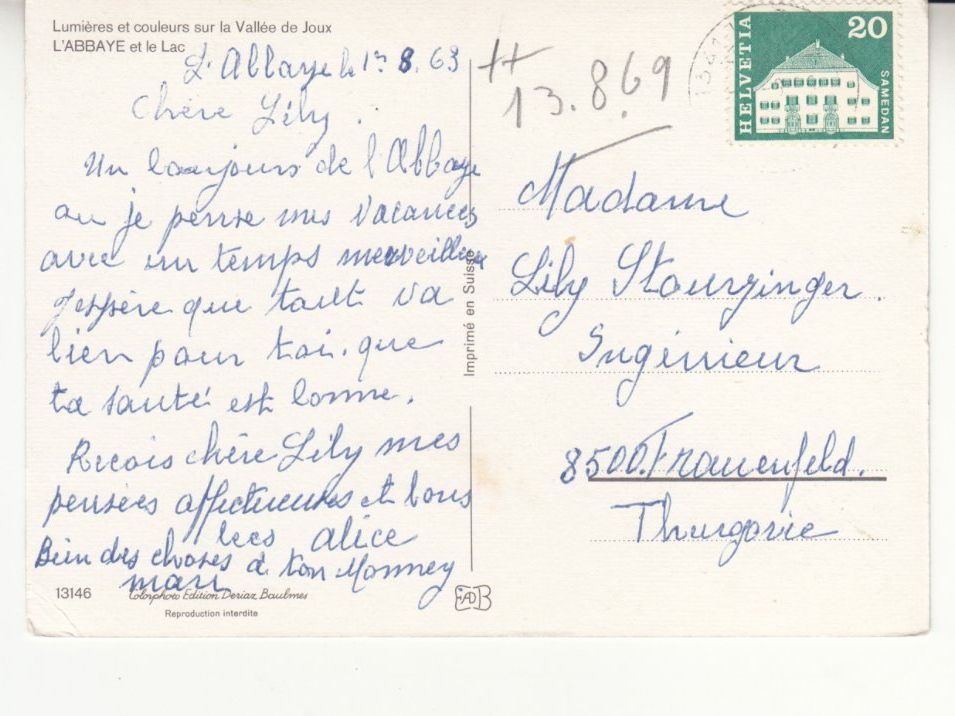 Lumières et couleurs sur la Vallée de Joux
L'ABBAYE et le Lac
L'Abbaye le 1er 8. 69
Chère Lily.
Un bonjours de l'Abbaye
ou je pense mes vacances
avec un temps merveilleux
J'espère que tout va
bien pour toi. que
ta santé est bonne.
Recois chère Lily mes
pensées affectueuses et bons
becs alice
Bien des choses à ton Monney
mari
13146
Colorphoto Edition Deriaz, Baulmes
Reproduction interdite
Imprimé en Suisse
13.8.69
HELVETIA
20
SAMEDAN
Madame
Lily Stourzinger.
Ingénieur
8500. Frauenfeld.
Thurgovie